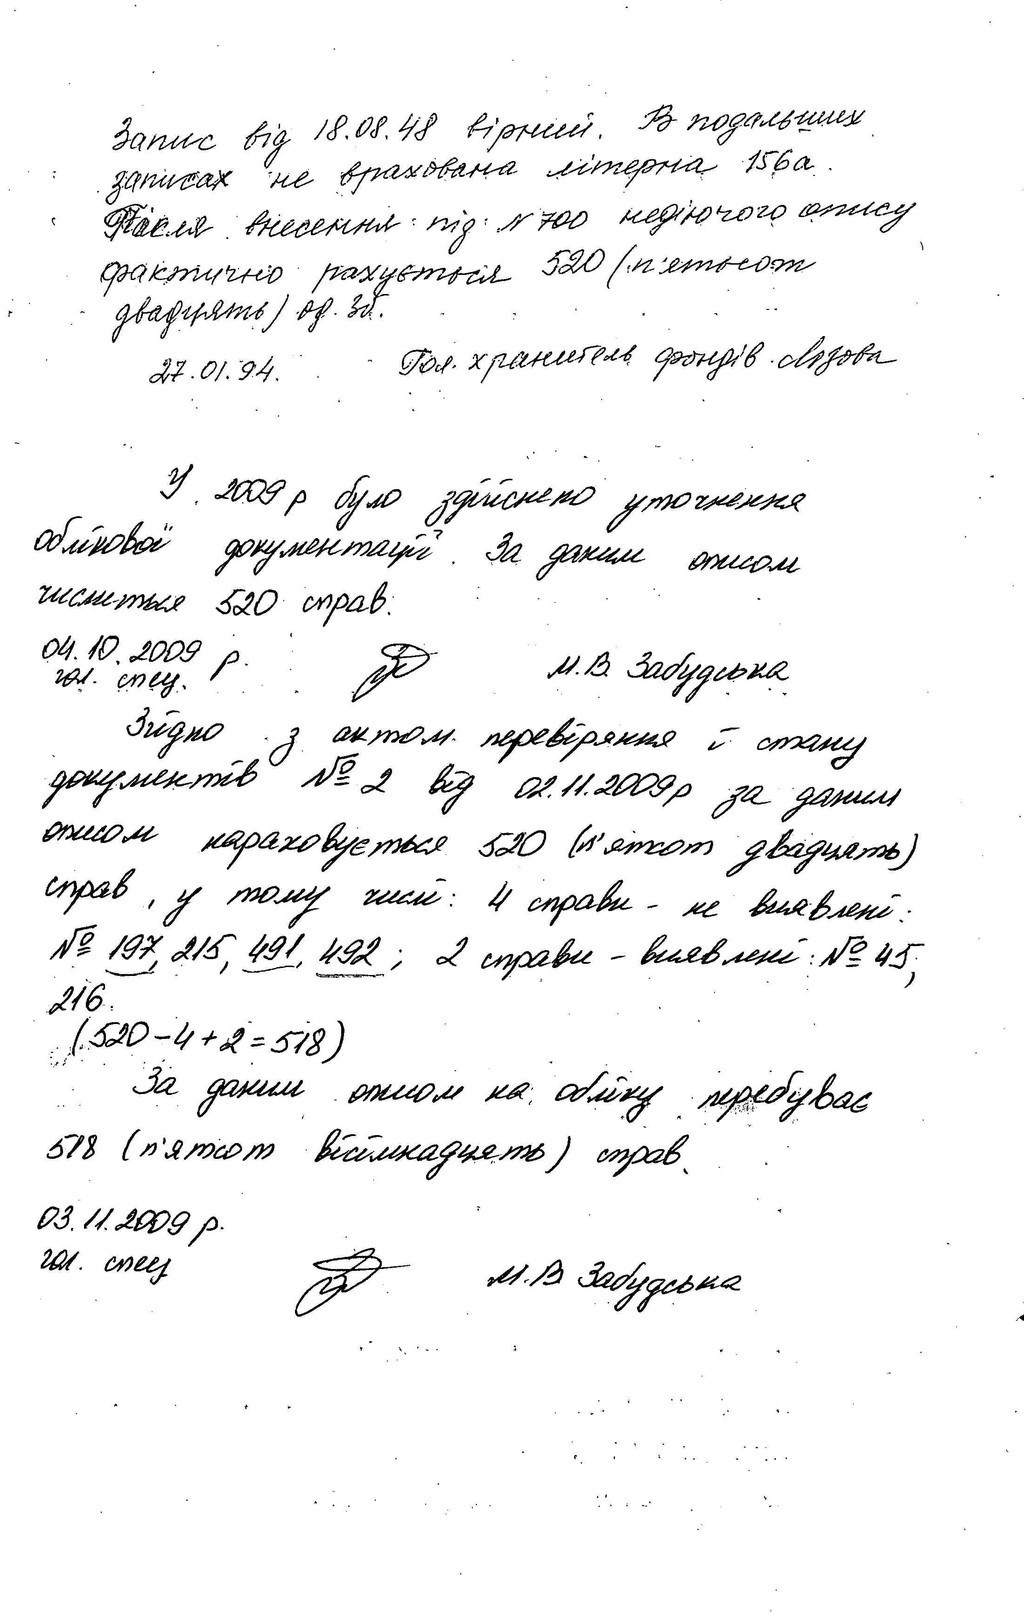 Запис від 18.08.48 вірний. В подальших
записах не врахована літерна 156а.
Після внесення під N 700 недіючого опису
фактично рахується 520 (п'ятьсот
двадцять) од. зб.
27.01.94. Гол. хранитель фондів Лозова
У 2009 р було здійснено уточнення
облікової документації. За даним описом
числиться 520 справ.
04.10.2009 р.
гол. спец. М.В. Забудська
Згідно з актом перевіряння і стану
документів № 2 від 02.11.2009р за даним
описом нараховується 520 (п'ятсот двадцять)
справ, у тому числі: 4 справи - не виявлені:
№ 197, 215, 491, 492; 2 справи - виявлені: № 45,
216.
(520-4+2=518)
За даним описом на обліку перебуває
518 (п'ятсот вісімнадцять) справ.
03.11.2009 р.
гол. спец М.В Забудська